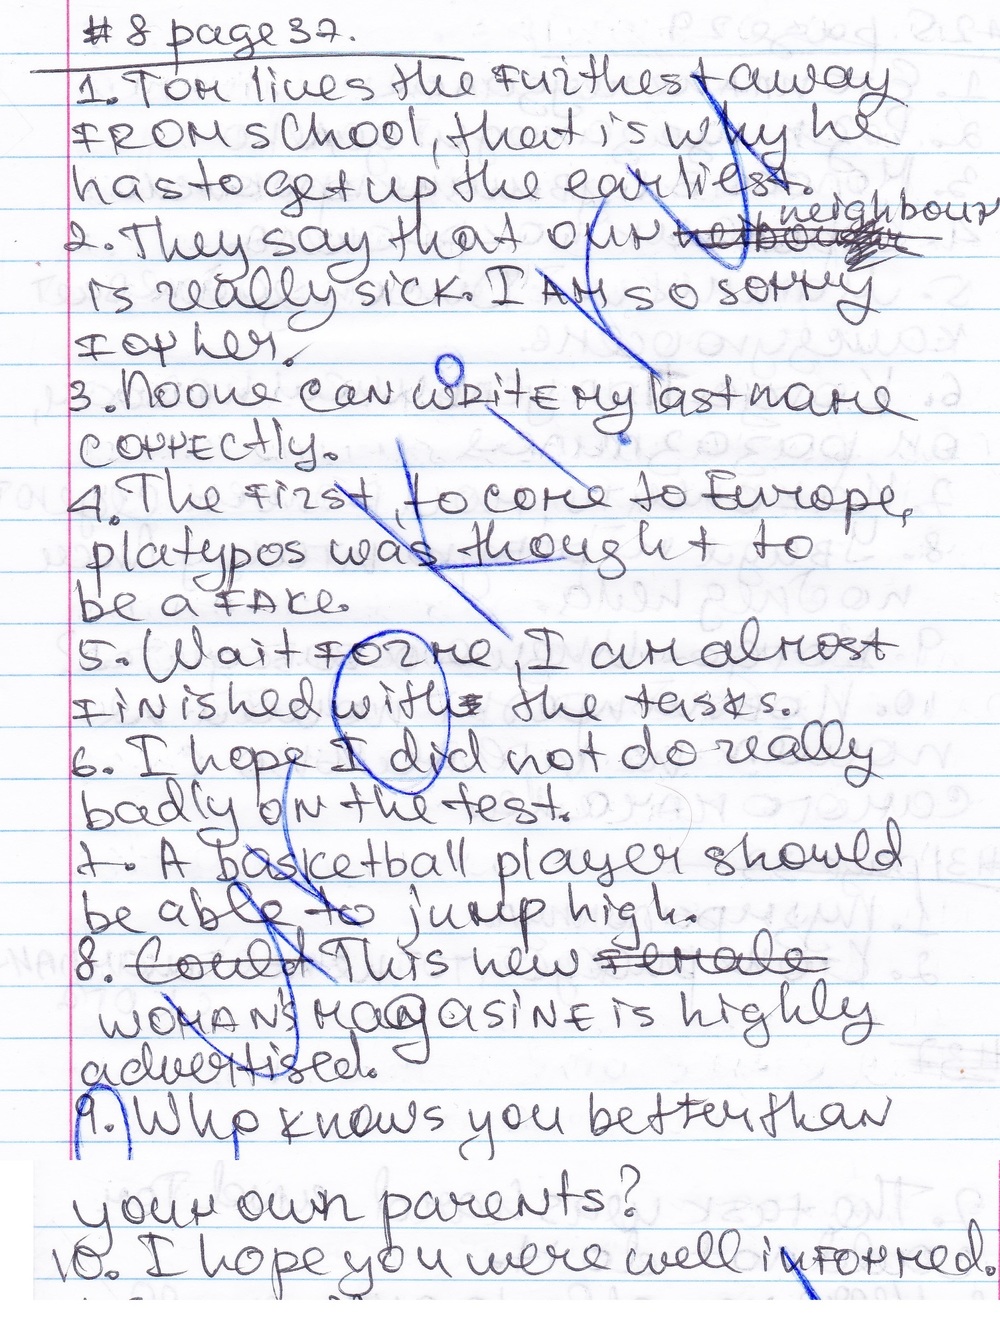 # 8 page 37.
1. Tom lives the furthest away
from school, that is why he
has to get up the earliest.
2. They say that our neighbour
is really sick. I am so sorry
for her.
3. No one can write my last name
correctly.
4. The first, to come to Europe,
platypos was thought to
be a fake.
5. Wait for me, I am almost
finished with the tasks.
6. I hope I did not do really
badly on the test.
7. A basketball player should
be able to jump high.
8. Could This new female
woman's magasine is highly
advertised.
9. Who knows you better than
your own parents?
10. I hope you were well informed.